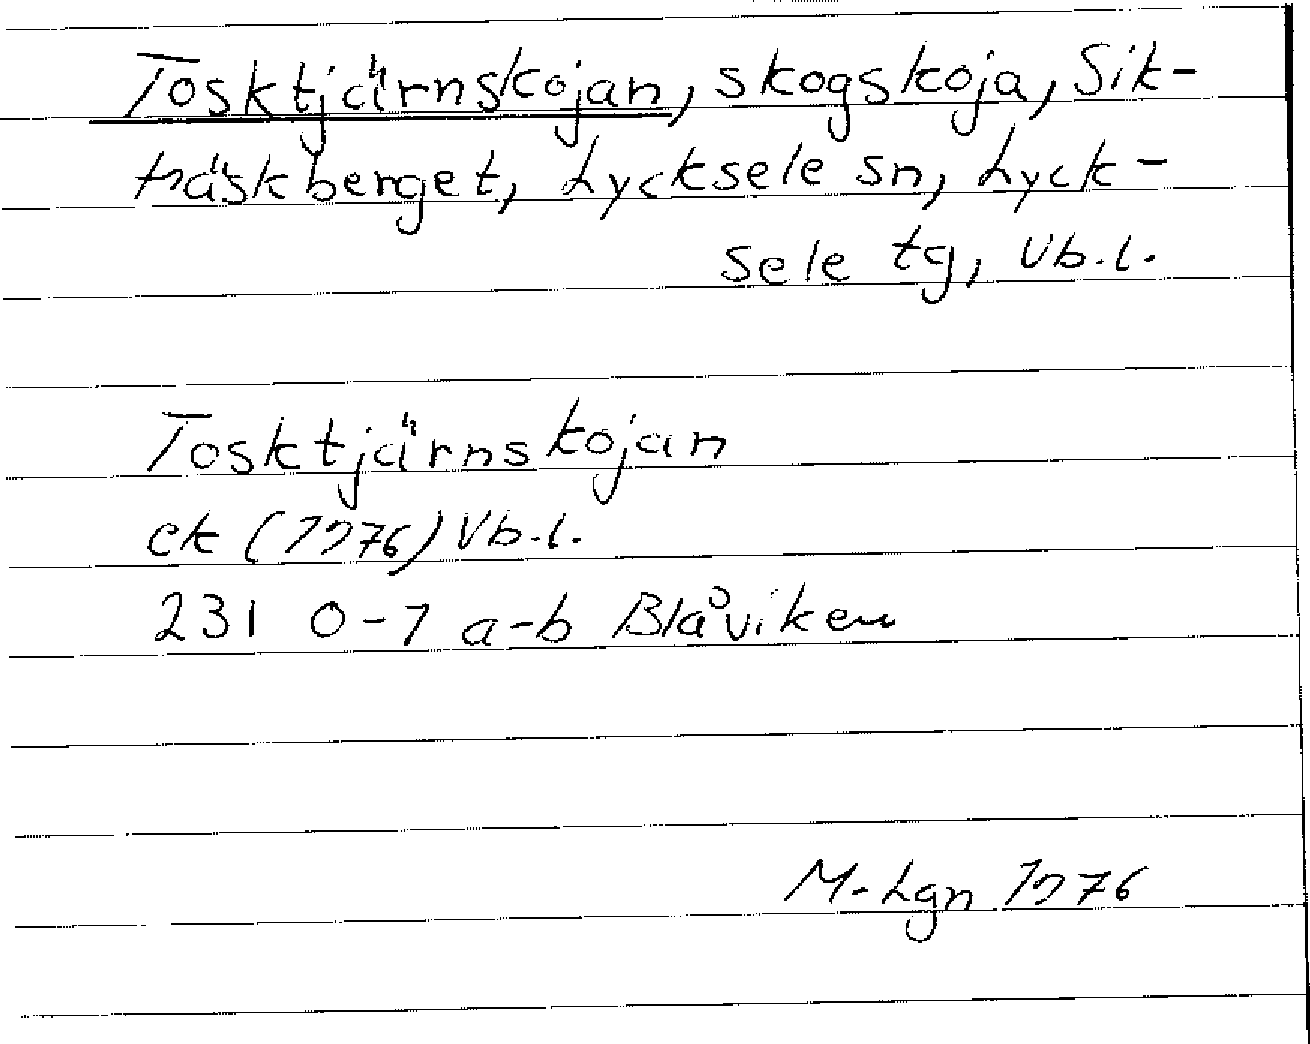 Tosktjärnskojan, skogskoja, Sik-
träskberget, Lycksele sn, Lyck-
sele tg, Vb.l.
Tosktjärnskojan
ek (1976) Vb.l.
231 0-1 a-b Blåviken
M-Lgn 1976